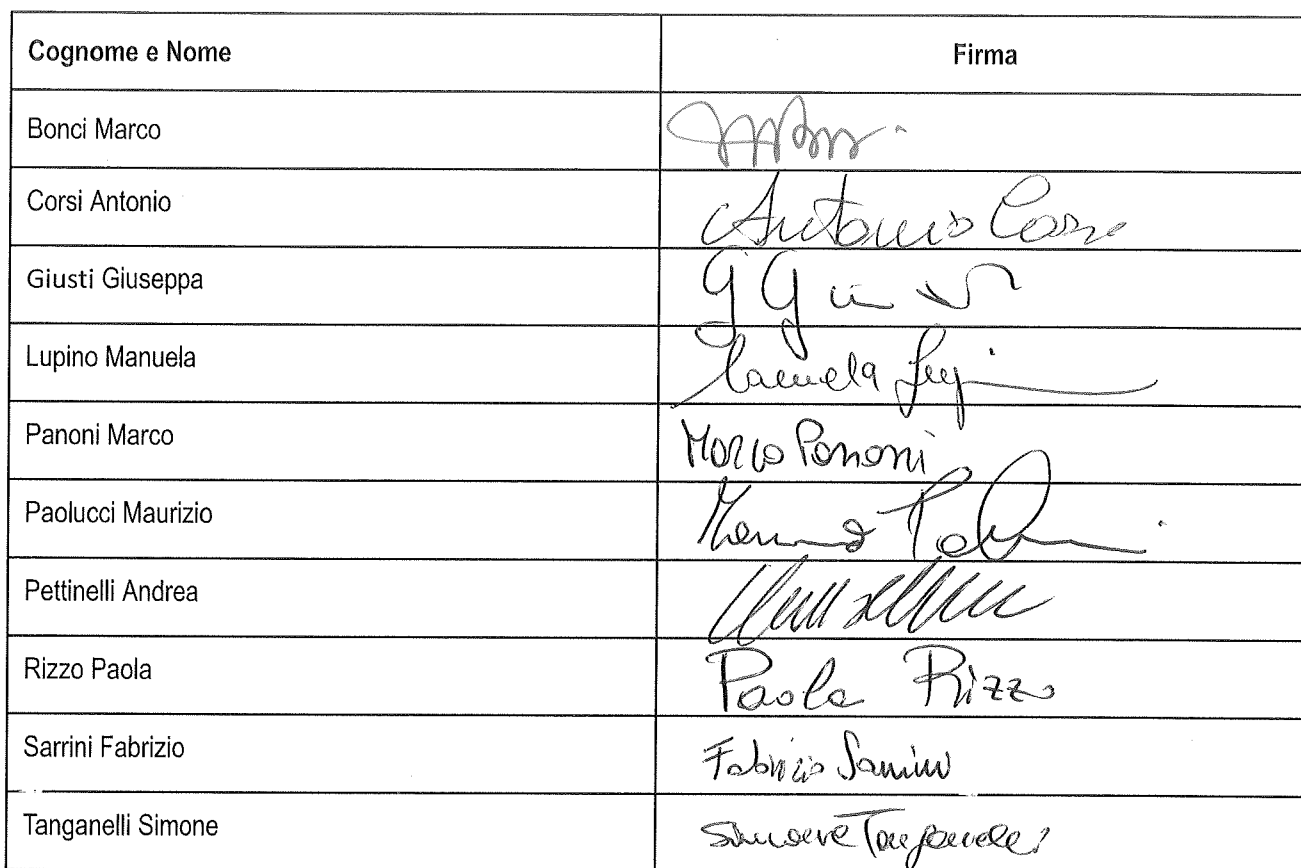 Cognome e Nome Firma
Bonci Marco
Corsi Antonio Antonio Corsi
Giusti Giuseppa
Lupino Manuela Manuela
Panoni Marco Marco Panoni
Paolucci Maurizio
Pettinelli Andrea
Rizzo Paola Paola Rizzo
Sarrini Fabrizio Fabrizio Sarrini
Tanganelli Simone Simone Tanganelli